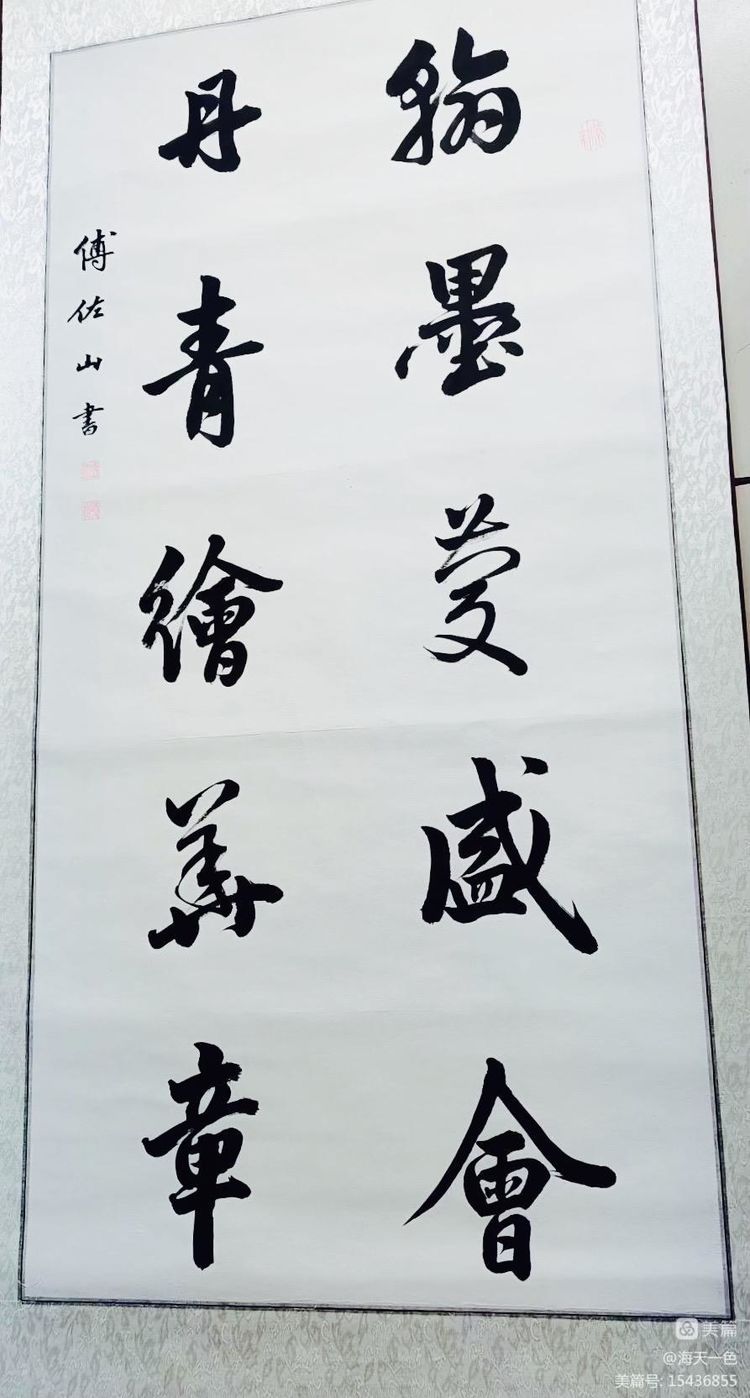 翰墨盛會
丹青繪華章
傅佐山書
美篇
@海天一色
美篇号: 15436855